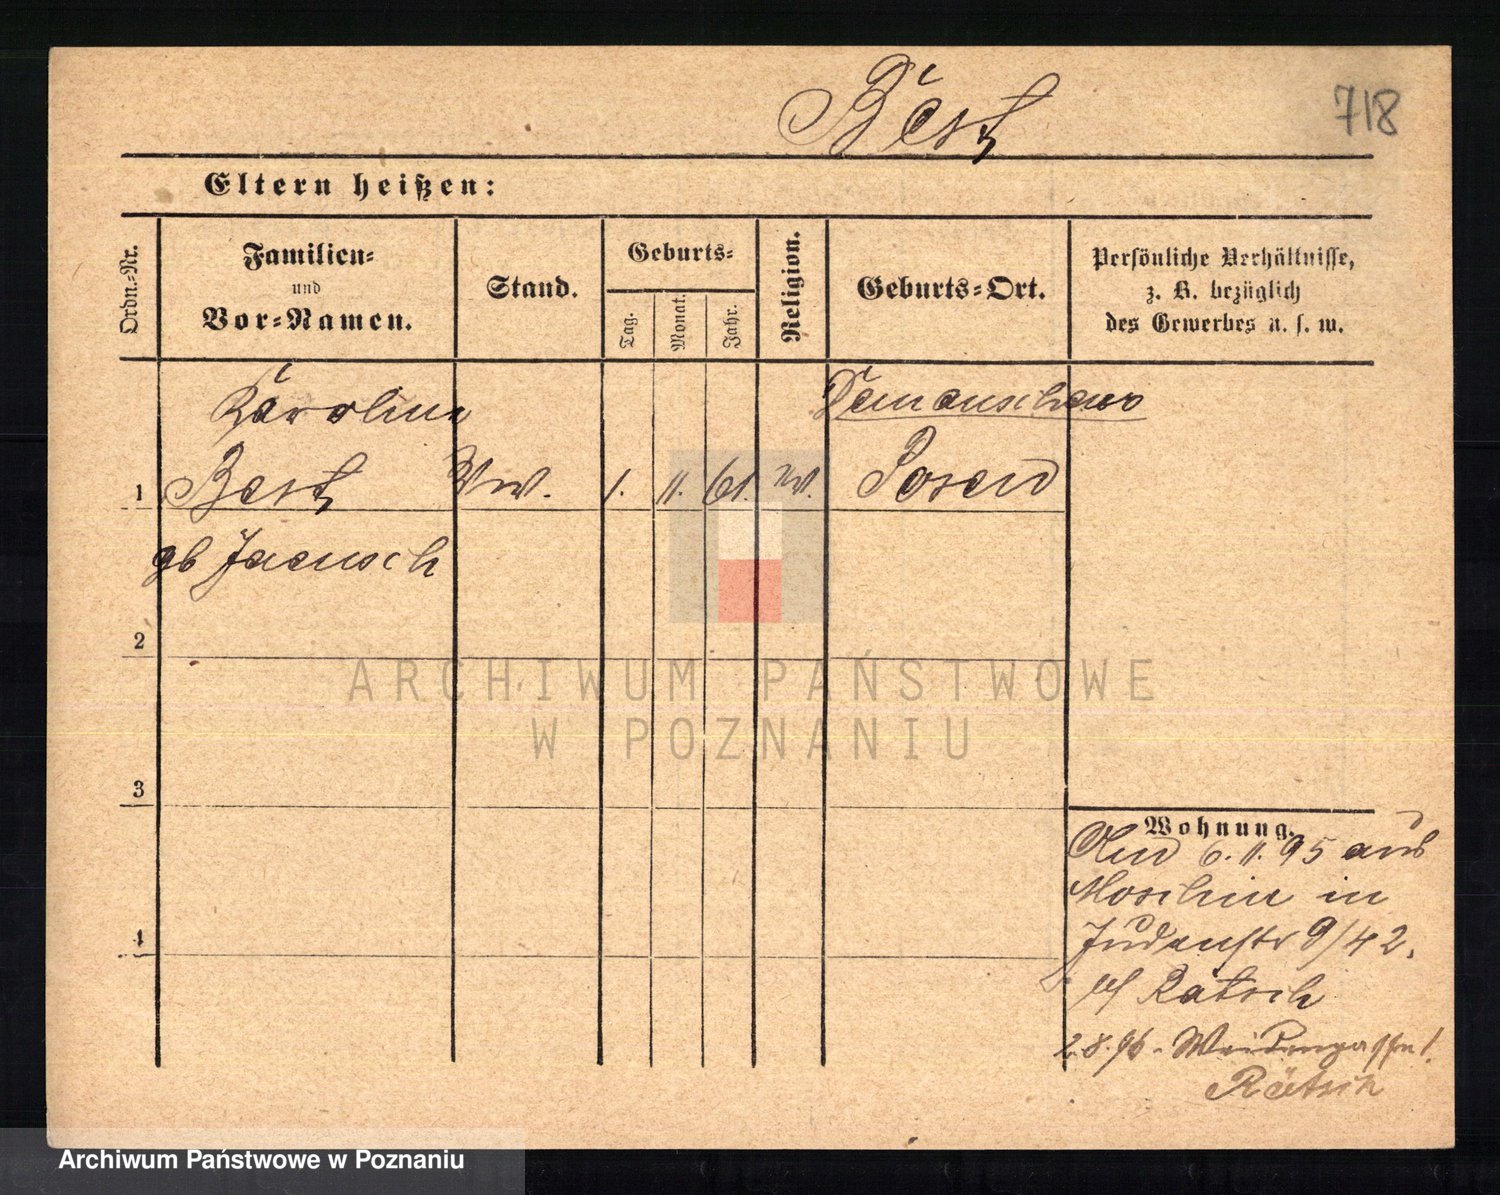 Best
718
Eltern heißen:
Ordn.-Nr.
Familien-
und
Vor-Namen.
Stand.
Geburts-
Tag.
Monat.
Jahr.
Religion.
Geburts-Ort.
Persönliche Verhältnisse,
z. B. bezüglich
des Gewerbes u. s. w.
Karoline
1 Best Ww. 1. 11. 61. ev. Posen
gb Jaensch
2
3
4
Wohnung.
6. 11. 95 aus
Moschin in
Judenstr 9/42.
bf Rätsch
2.8.96. Weidengasse 1.
Rätsch
ARCHIWUM PAŃSTWOWE
W POZNANIU
Archiwum Państwowe w Poznaniu